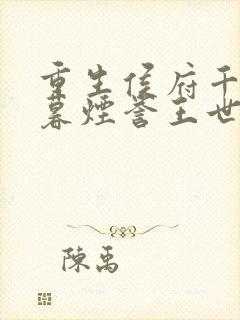 重生侯府千
暮煙誉王世
陳禹